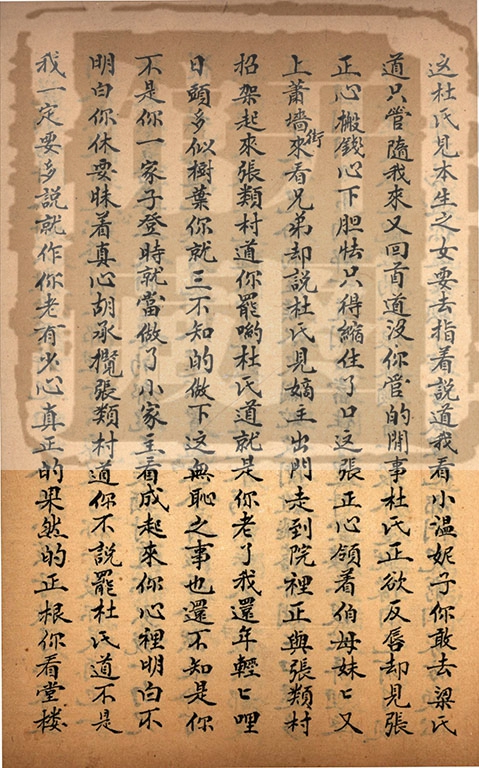 这杜氏見本生之女要去指着說道我看小溫妮子你敢去梁氏
道只管隨我來又回首道沒你管的閒事杜氏正欲反唇却見張
正心搬錢心下胆怯只得縮住了口这張正心領着伯母妹匕又
上蕭墻街來看兄弟却說杜氏見嫡主出門走到院裡正與張類村
招架起來張類村道你罷喲杜氏道就是你老了我還年輕匕哩
日頭多似樹葉你就三不知的做下这無恥之事也還不知是你
不是你一家子登時就當做了小家主看成起來你心裡明白不
明白你休要昧着真心胡承攬張類村道你不說罷杜氏道不是
我一定要多說就作你老有少心真正的果然的正根你看堂楼